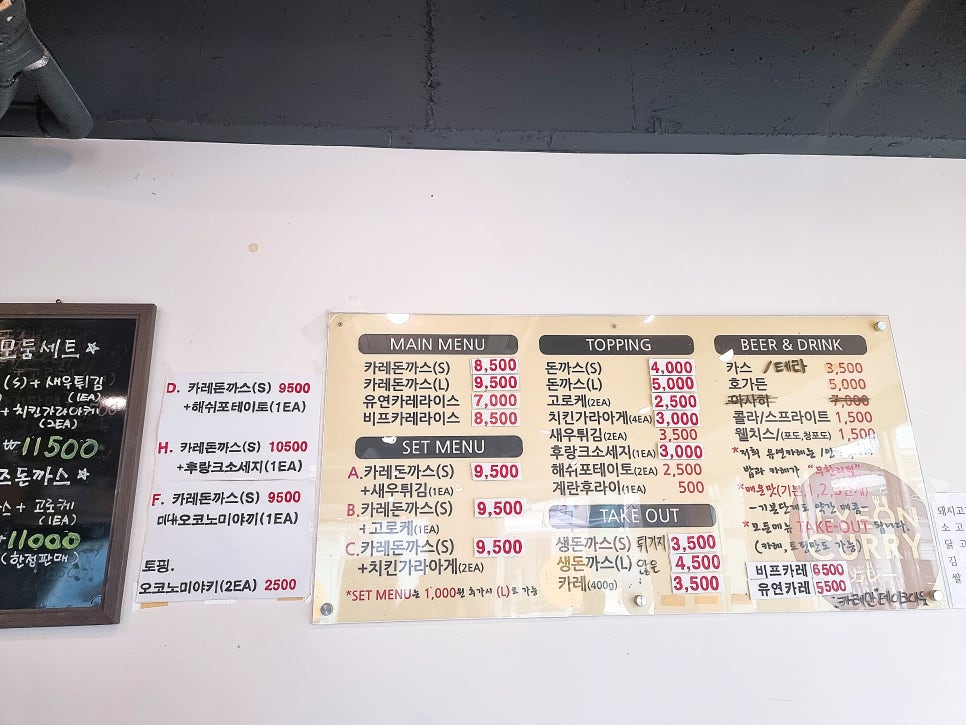 모둠세트 ☆
(S) + 새우튀김
(1EA)
+ 치킨가라아게
(2EA)
₩11500
즈돈까스 ★
소 + 고로케
(1EA)
11000
(한정판매)
D. 카레돈까스(S) 9500
+해쉬포테이토(1EA)
H. 카레돈까스(S) 10500
+후랑크소세지(1EA)
F. 카레돈까스(S) 9500
미니오코노미야끼(1EA)
토핑.
오코노미야키(2EA) 2500
MAIN MENU
카레돈까스(S) 8,500
카레돈까스(L) 9,500
유연카레라이스 7,000
비프카레라이스 8,500
SET MENU
A.카레돈까스(S) 9,500
+새우튀김(1EA)
B.카레돈까스(S) 9,500
+고로케(1EA)
C.카레돈까스(S) 9,500
+치킨가라아게(2EA)
*SET MENU는 1,000원 추가시 (L)로 가능
TOPPING
돈까스(S) 4,000
돈까스(L) 5,000
고로케(2EA) 2,500
치킨가라아게(4EA) 3,000
새우튀김(2EA) 3,500
후랑크소세지(1EA) 3,000
해쉬포테이토(2EA) 2,500
계란후라이(1EA) 500
TAKE OUT
생돈까스(S) 튀기지 3,500
생돈까스(L) 않은 4,500
카레(400g) 3,500
BEER & DRINK
카스 /테라 3,500
호가든 5,000
아사히 7,000
콜라/스프라이트 1,500
웰치스/(포도,청포도) 1,500
*저희 유연카레는 1인
밥과 카레가 "무한리필"
*매운맛(기본,1,2,3단계)
-기본단계도 약간 매콤-
*모든메뉴 TAKE-OUT 됩니다.
(카레,토핑만도 가능)
TON
CURRY
비프카레 6500
유연카레 5500
카레만 테이크아웃
돼지고
소고
닭고
김
쌀